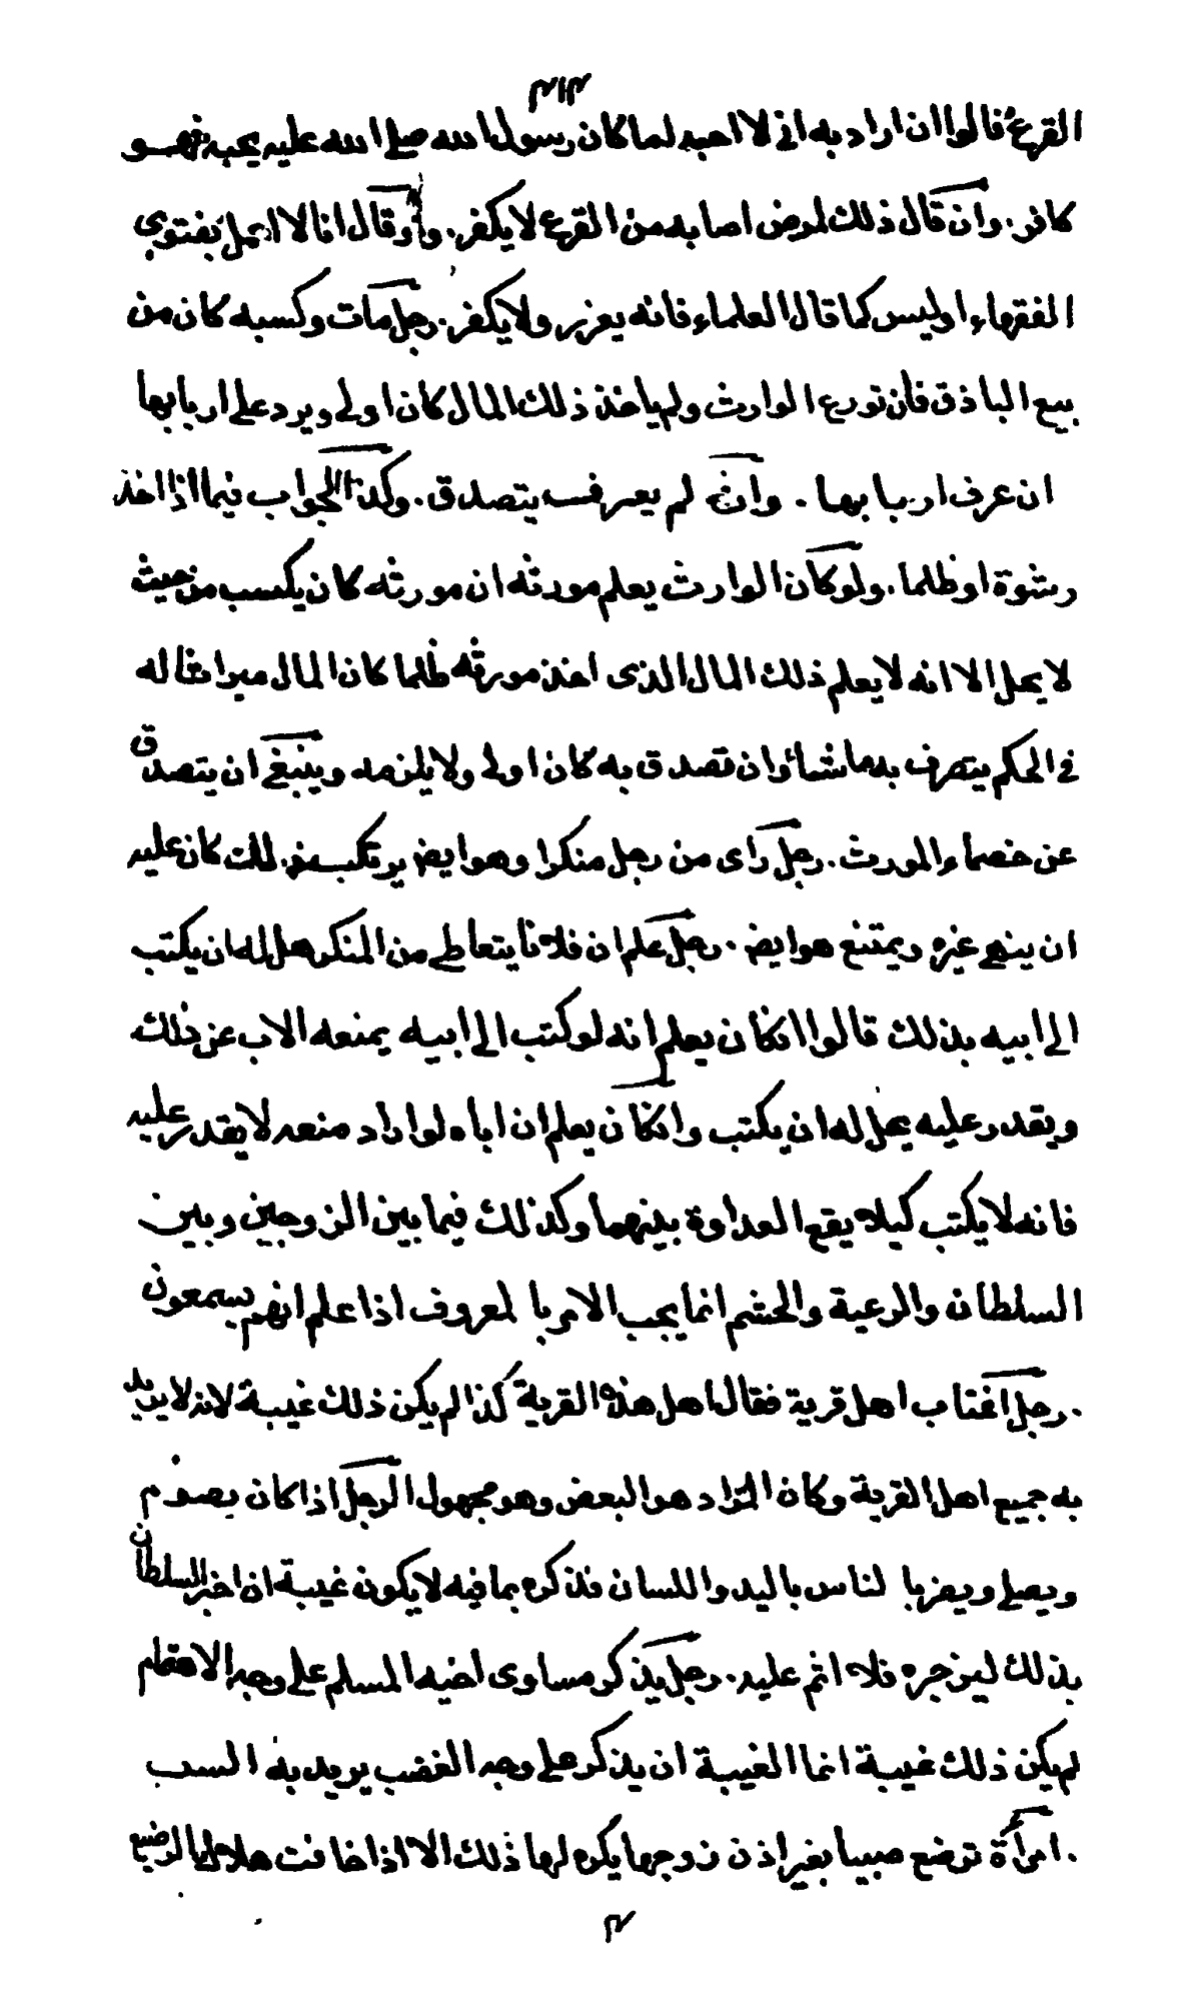 القرع قالوا ان اراد به اني لا احبه لما كان رسول الله صلى الله عليه يحبه فهو
كافر. وان قال ذلك لمرض اصابه من القرع لا يكفر. ولو قال انا لا اعمل بفتوى
الفقهاء او ليس كما قال العلماء فانه يعزر ولا يكفر. رجل مات وكسبه كان من
بيع الباذق فان تورع الوارث ولم ياخذ ذلك المال كان اولى ويرد على اربابها
ان عرف اربابها. وان لم يعرف يتصدق. وكذا الجواب فيما اذا اخذ
رشوة او ظلما. ولو كان الوارث يعلم مورثه ان مورثه كان يكسب من حيث
لا يحل الا انه لا يعلم ذلك المال الذى اخذ مورثه ظلما كان المال ميراثا له
في الحكم يتصرف به ما شاء وان تصدق به كان اولى ولا يلزمه وينبغي ان يتصدق
عن خصماء المورث. رجل راى من رجل منكرا وهو ايضا يرتكب كان عليه
ان ينهي غيره ويمتنع هو ايضا. رجل علم ان فلانا يتعاطى من المنكر هل له ان يكتب
الى ابيه بذلك قالوا انكان يعلم انه لو كتب الى ابيه يمنعه الاب عن ذلك
ويقدر عليه يحل له ان يكتب وانكان يعلم ان اباه لو اراد منعه لا يقدر عليه
فانه لا يكتب كيلا يقع العداوة بينهما وكذلك فيما بين الزوجين وبين
السلطان والرعية والحشم انما يجب الامر بالمعروف اذا علم انهم يسمعون
. رجل اغتاب اهل قرية فقال اهل هذه القرية كذا لم يكن ذلك غيبة لانه لا يريد
به جميع اهل القرية وكان المراد هو البعض وهو مجهول الرجل اذا كان يصوم
ويصلي ويضر بالناس باليد واللسان فذكره بما فيه لا يكون غيبة ان اخبر السلطان
بذلك ليزجره فلا اثم عليه. رجل يذكر مساوى اخيه المسلم على وجه الاهتمام
لم يكن ذلك غيبة انما الغيبة ان يذكر على وجه الغضب يريد به السب
. امرأة ترضع صبيا بغير اذن زوجها يكره لها ذلك الا اذا خافت هلاك الرضيع